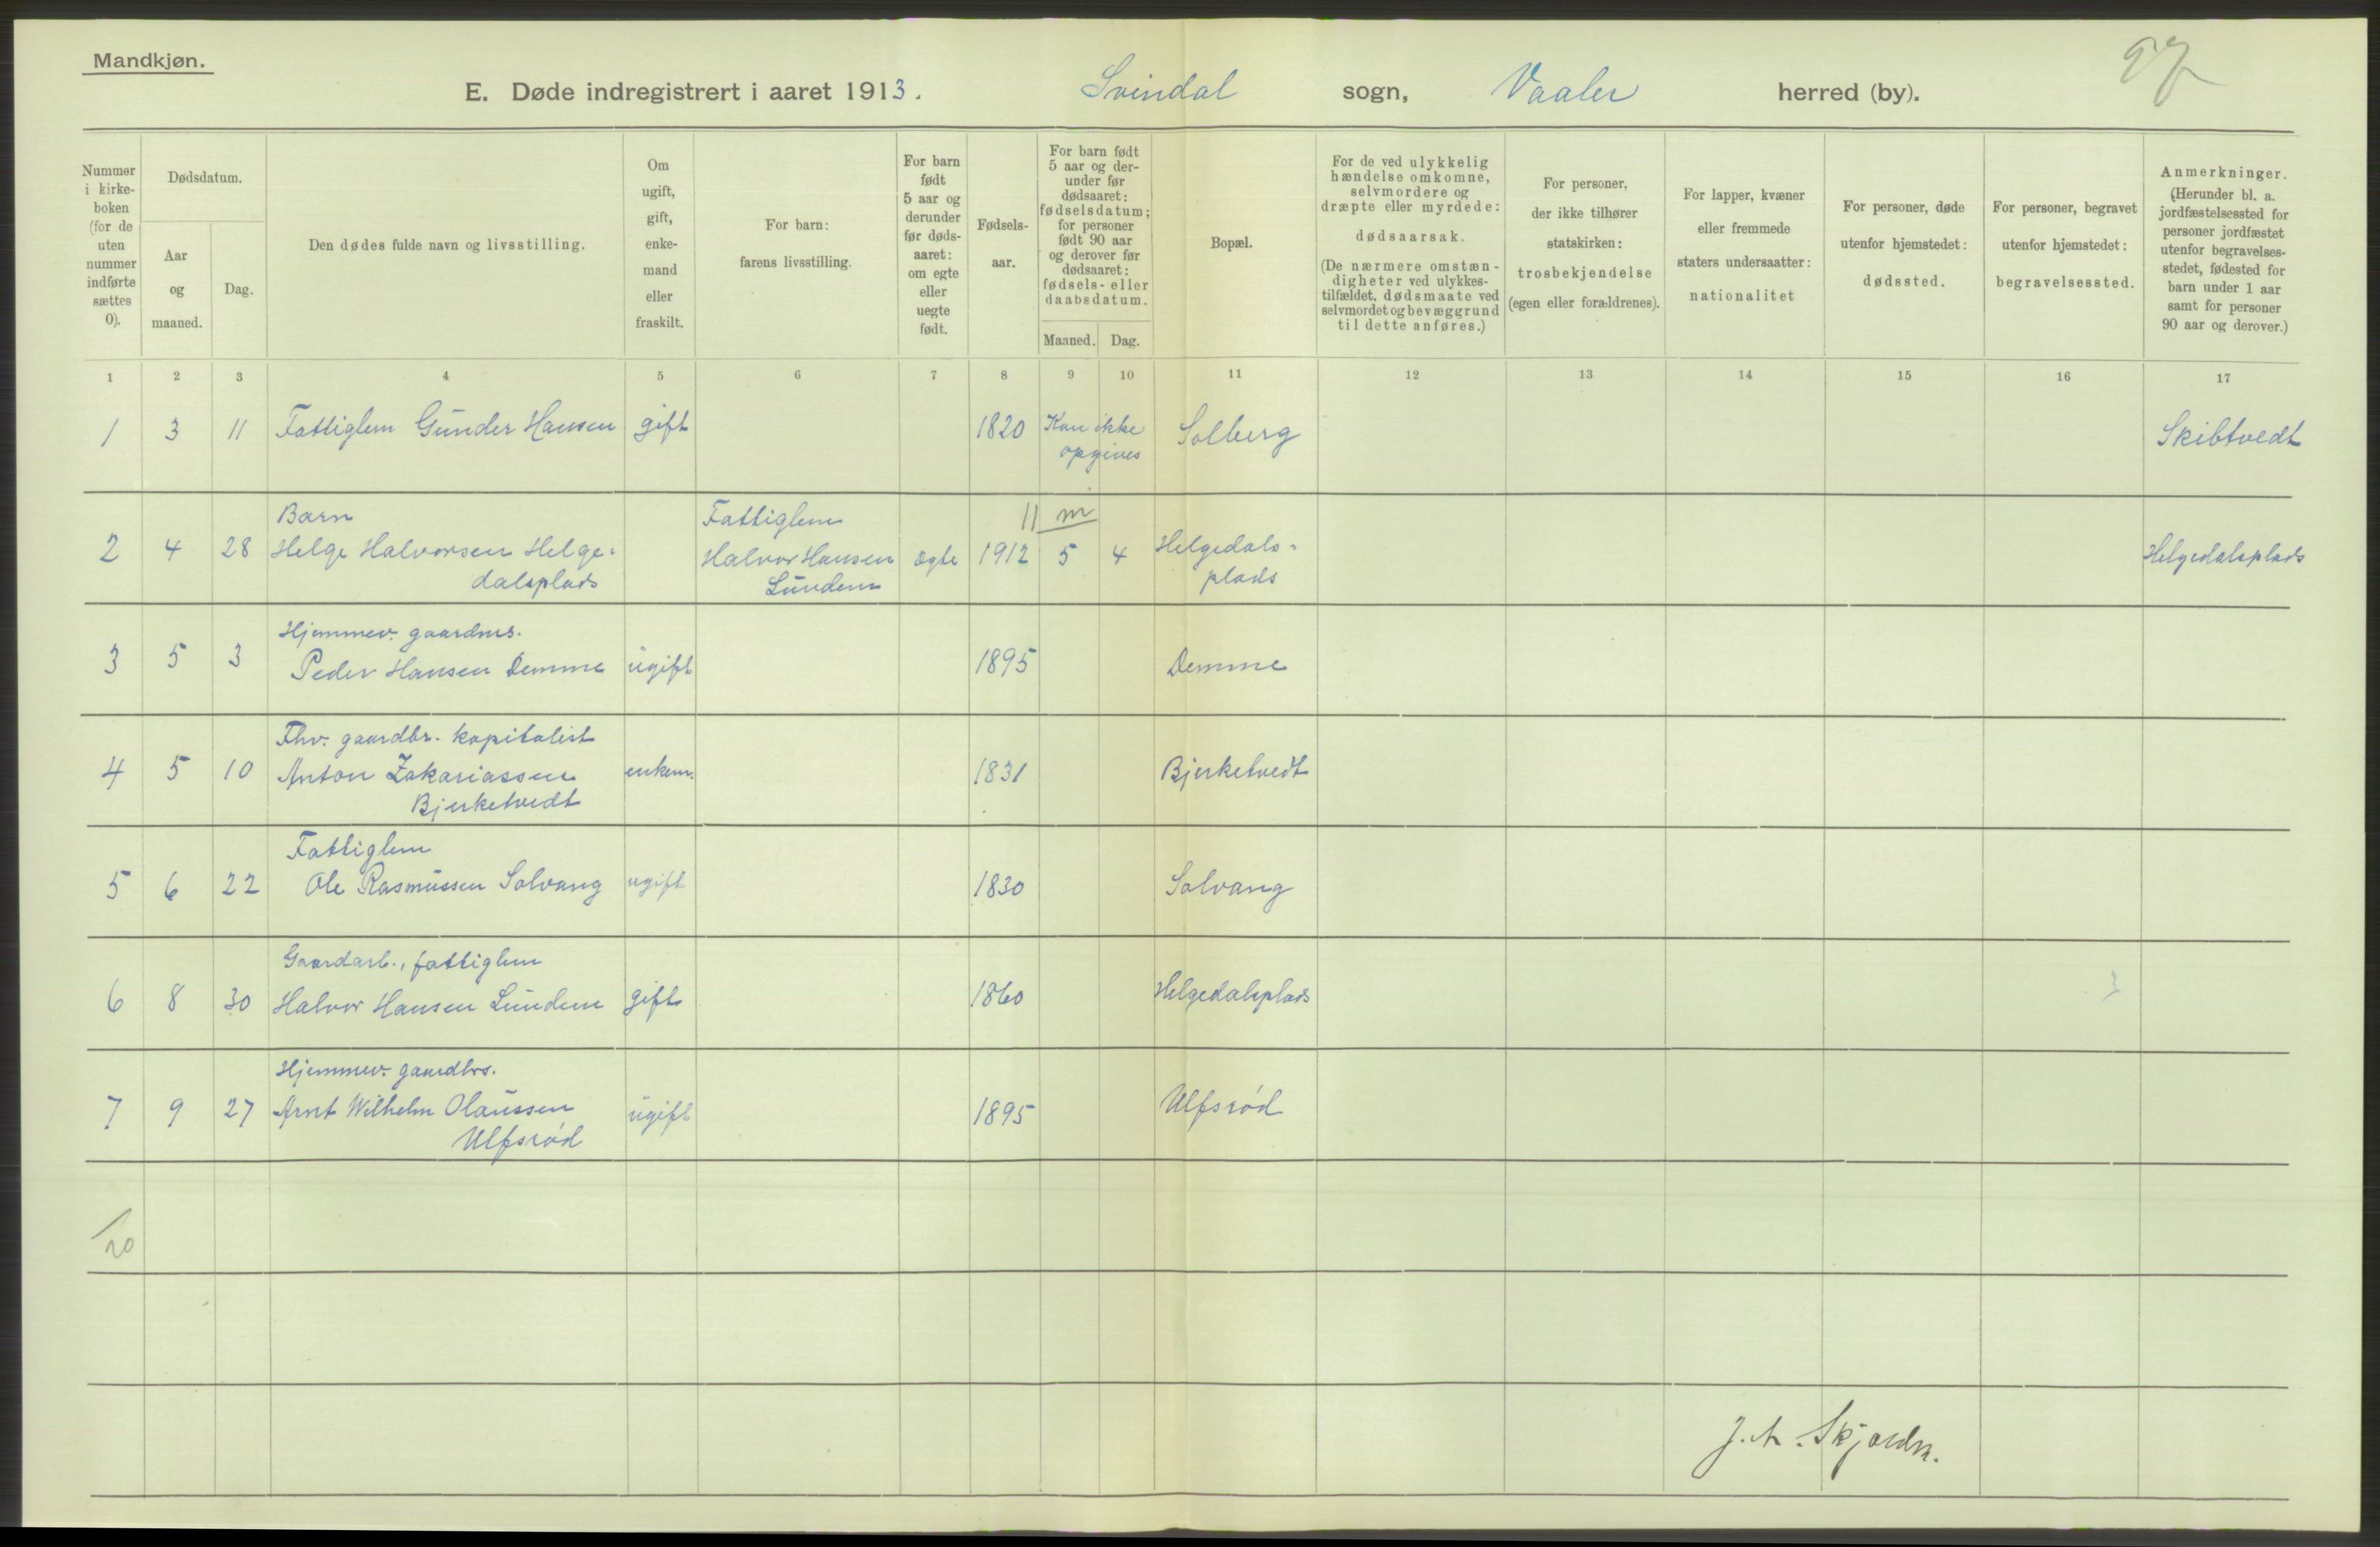 Mandkjøn.
E. Døde indregistrert i aaret 1913. Svindal sogn, Vaaler herred (by).
Nummer i kirke- boken (for de uten nummer indførte sættes 0).
Dødsdatum.
Aar og maaned.
Dag.
Den dødes fulde navn og livsstilling.
Om ugift, gift, enke- mand eller fraskilt.
For barn: farens livsstilling.
For barn født 5 aar og derunder før døds- aaret: om egte eller uegte født.
Fødsels- aar.
For barn født 5 aar og der- under før dødsaaret: fødselsdatum; for personer født 90 aar og derover før dødsaaret: fødsels- eller daabsdatum.
Maaned. Dag.
Bopæl.
For de ved ulykkelig hændelse omkomne, selvmordere og dræpte eller myrdede: dødsaarsak. (De nærmere omstæn- digheter ved ulykkes- tilfældet, dødsmaate ved selvmordet og bevæggrund til dette anføres.)
For personer, der ikke tilhører statskirken: trosbekjendelse (egen eller forældrenes).
For lapper, kvæner eller fremmede staters undersaatter: nationalitet
For personer, døde utenfor hjemstedet: dødssted.
For personer, begravet utenfor hjemstedet: begravelsessted.
Anmerkninger. (Herunder bl. a. jordfæstelsessted for personer jordfæstet utenfor begravelses- stedet, fødested for barn under 1 aar samt for personer 90 aar og derover.)
1 2 3 4 5 6 7 8 9 10 11 12 13 14 15 16 17
1 3 11 Fattiglem Gunder Hansen gift 1820 Kan ikke Solberg Skibtvedt
opgives
Barn Fattiglem 11 m
2 4 28 Helge Halvorsen Helge- Halvor Hansen ægte 1912 5 4 Helgedals- Helgedalsplads
dalsplads Lundem plads
Hjemmev. gaardms.
3 5 3 Peder Hansen Demme ugift 1895 Demme
Fhv. gaardbr. kapitalist
4 5 10 Anton Zakariassen enkem. 1831 Bjerketvedt
Bjerketvedt
Fattiglem
5 6 22 Ole Rasmussen Solvang ugift 1830 Solvang
Gaardarb., fattiglem
6 8 30 Halvor Hansen Lundem gift 1860 Helgedalsplads
Hjemmev. gaardbrs.
7 9 27 Arnt Wilhelm Olaussen ugift 1895 Ulfsrød
Ulfsrød